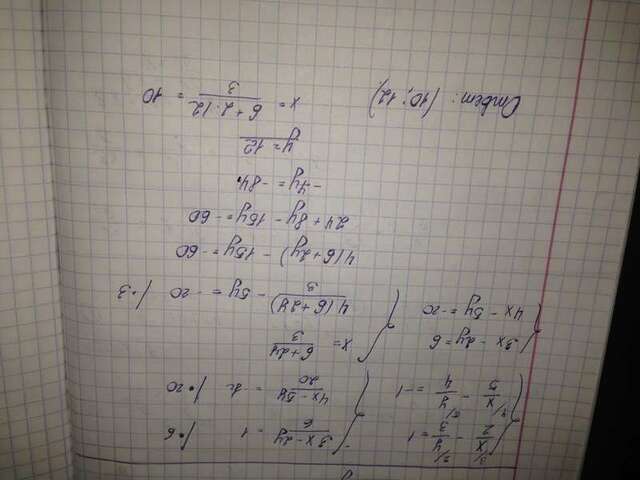 x/2 - y/3 = 1 3x - 2y/6 = 1 /·6
x/5 - y/4 = -1 4x - 5y/20 = /·20
3x - 2y = 6 x = 6 + 2y/3
4x - 5y = -20 4(6 + 2y)/3 - 5y = -20 /·3
4(6 + 2y) - 15y = -60
24 + 8y - 15y = -60
-7y = -84
y = 12
x = 6 + 2·12/3 = 10
Ответ: (10; 12).